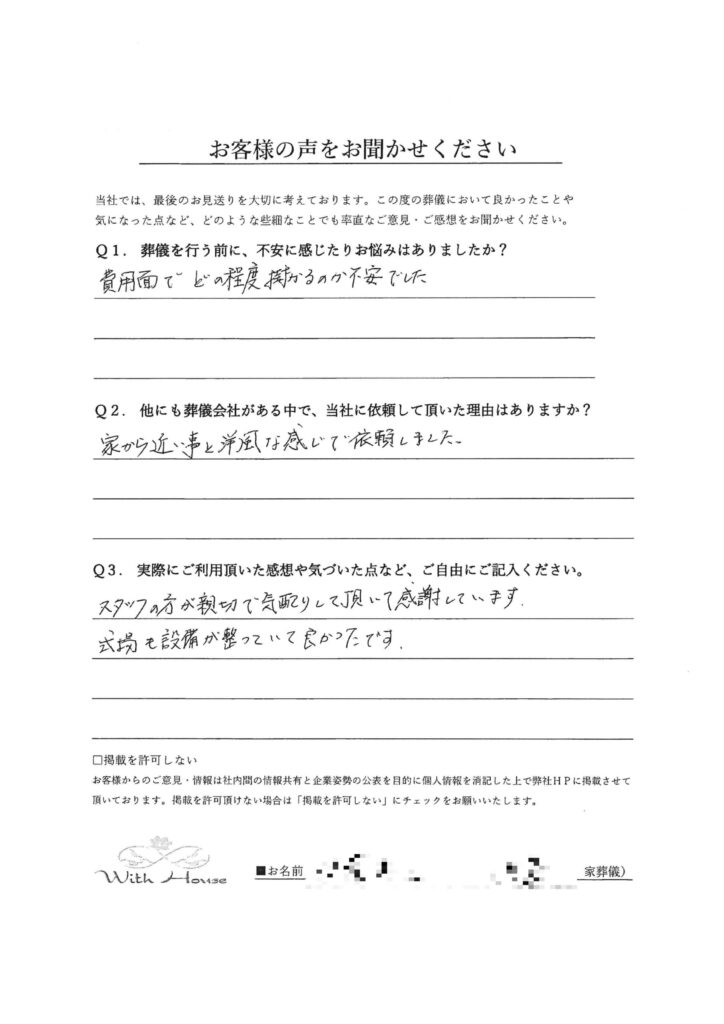 お客様の声をお聞かせください
当社では、最後のお見送りを大切に考えております。この度の葬儀において良かったことや
気になった点など、どのような些細なことでも率直なご意見・ご感想をお聞かせください。
Q1. 葬儀を行う前に、不安に感じたりお悩みはありましたか?
費用面で どの程度掛かるのか不安でした
Q2. 他にも葬儀会社がある中で、当社に依頼して頂いた理由はありますか?
家から近い事と洋風な感じで依頼しました。
Q3. 実際にご利用頂いた感想や気づいた点など、ご自由にご記入ください。
スタッフの方が親切で気配りして頂いて感謝しています.
式場も設備が整っていて良かったです.
□掲載を許可しない
お客様からのご意見・情報は社内間の情報共有と企業姿勢の公表を目的に個人情報を消記した上で弊社HPに掲載させて
頂いております。掲載を許可頂けない場合は「掲載を許可しない」にチェックをお願いいたします。
With House
■お名前
家葬儀)